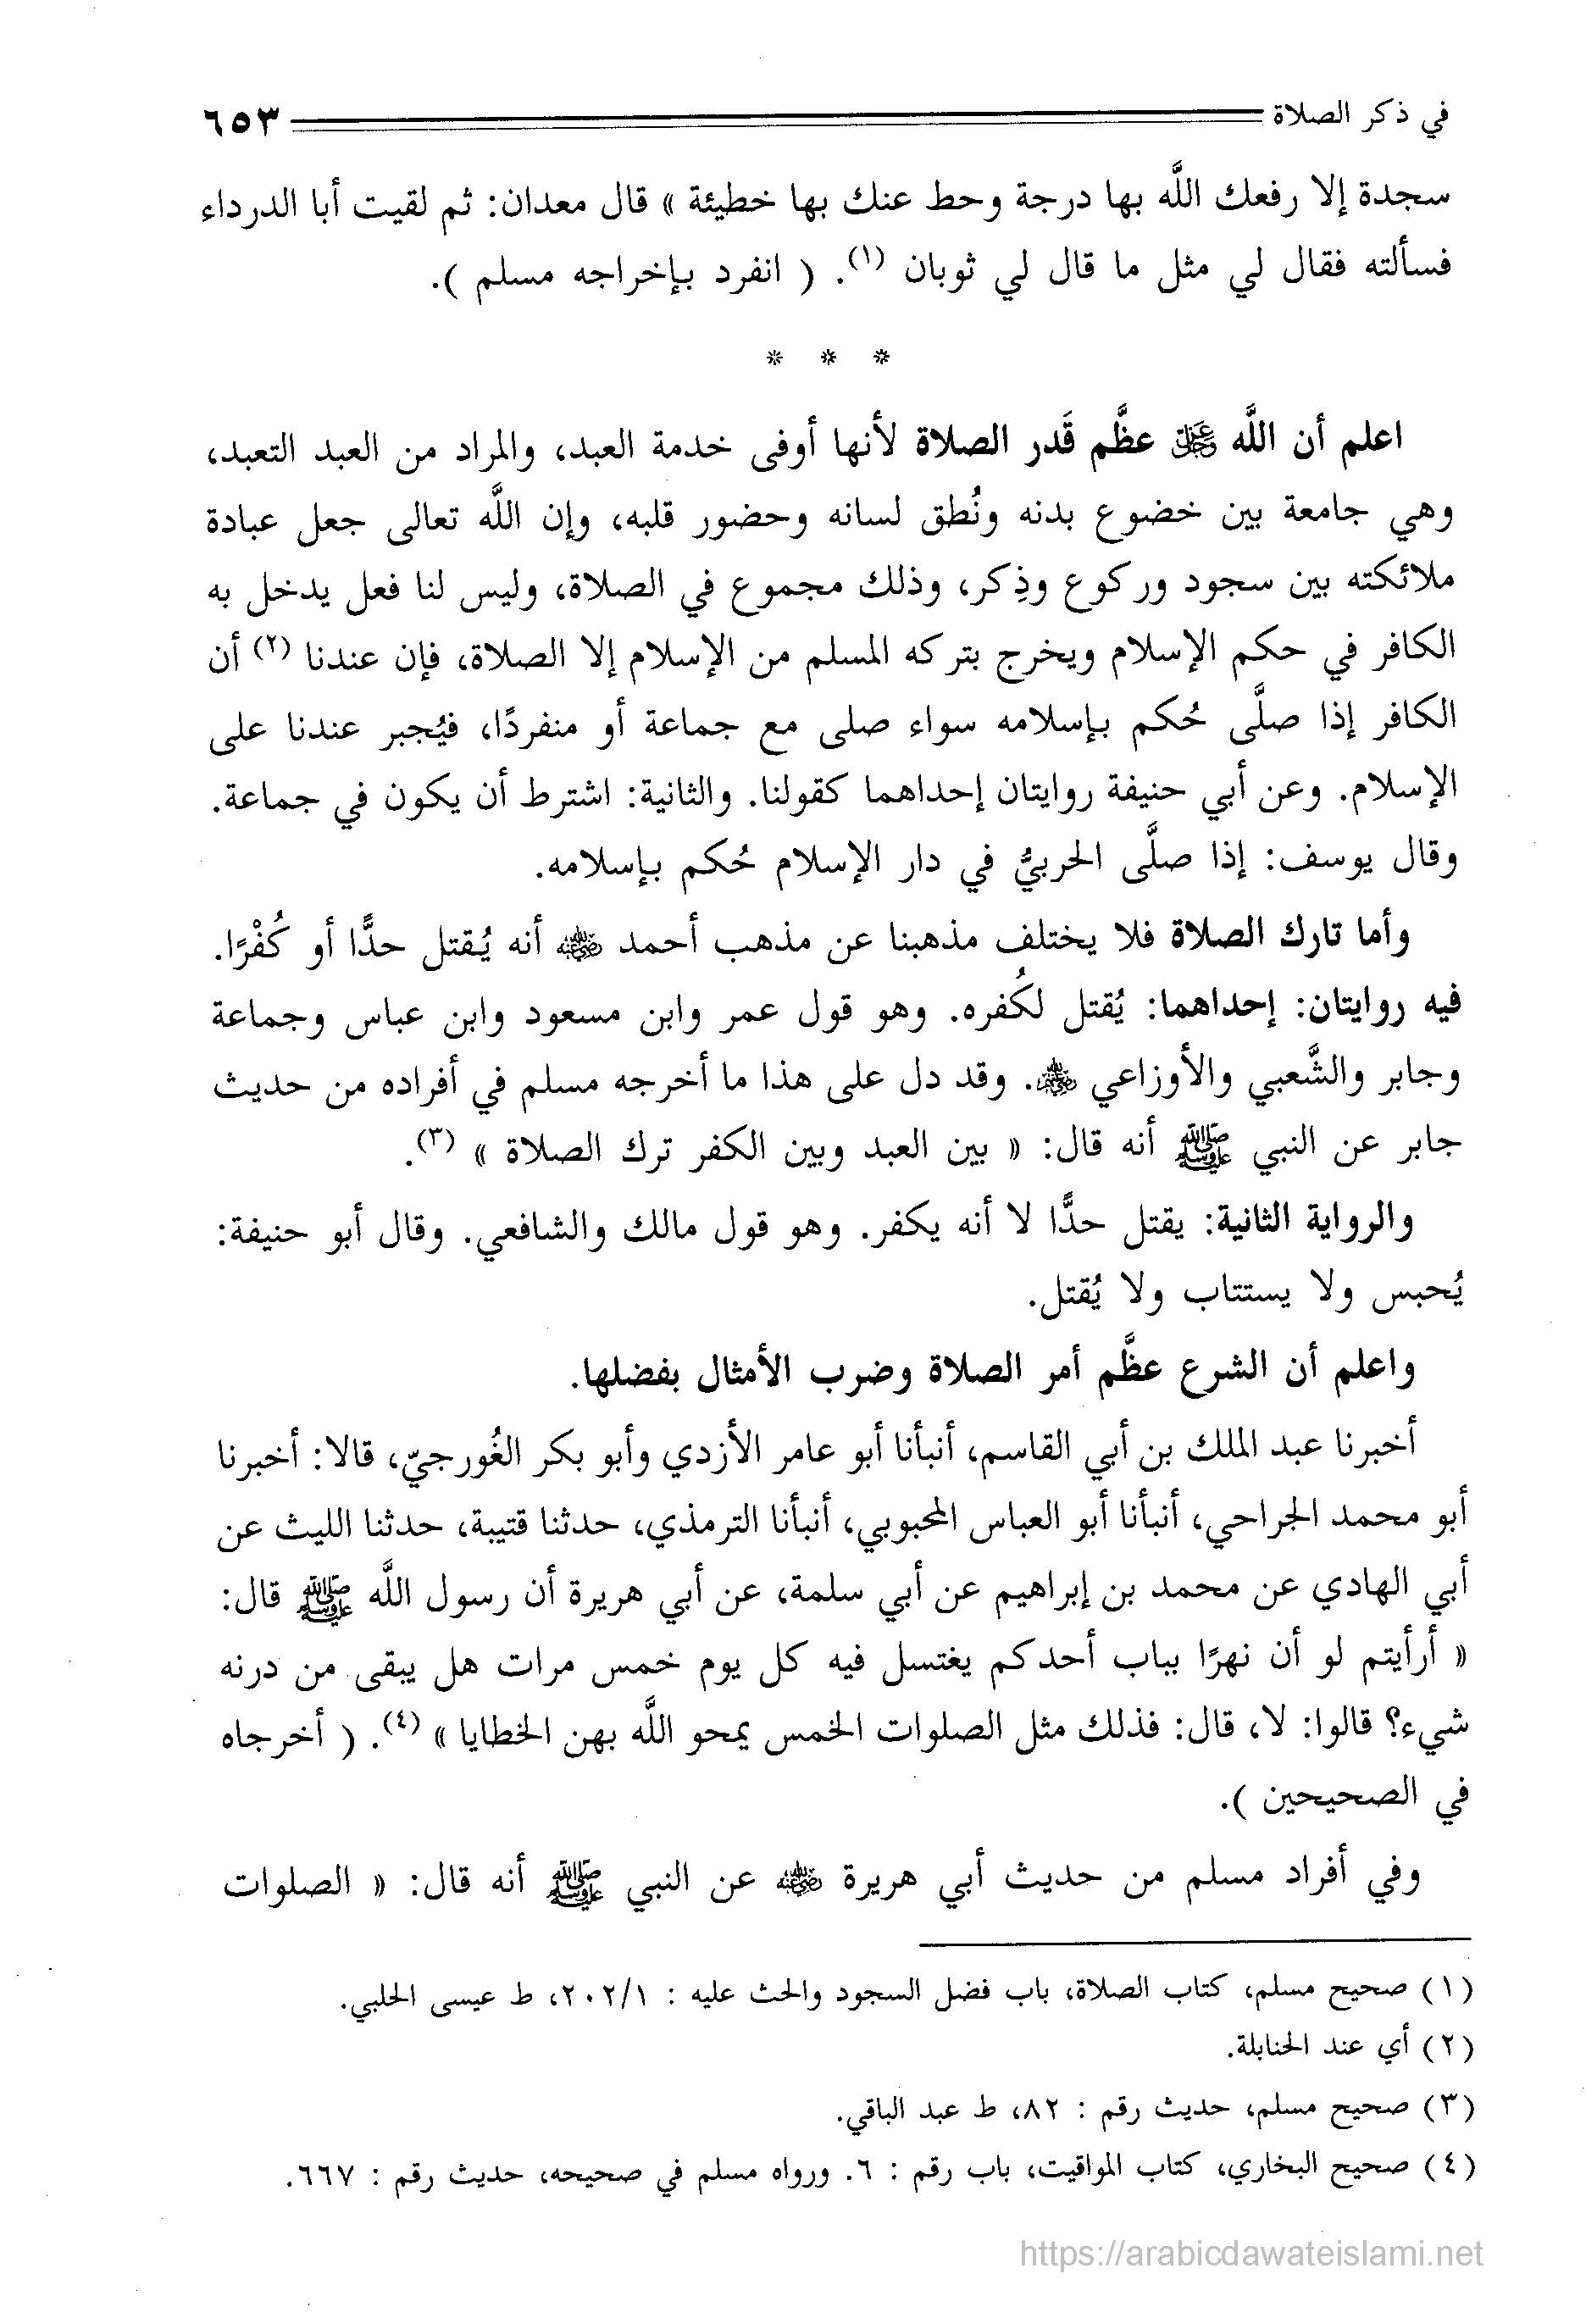 في ذكر الصلاة ٦٥٣
سجدة إلا رفعك اللَّه بها درجة وحط عنك بها خطيئة » قال معدان: ثم لقيت أبا الدرداء
فسألته فقال لي مثل ما قال لي ثوبان (١). ( انفرد بإخراجه مسلم ).
* * *
اعلم أن اللَّه عَزَّ وَجَلَّ عظَّم قَدر الصلاة لأنها أوفى خدمة العبد، والمراد من العبد التعبد،
وهي جامعة بين خضوع بدنه ونُطق لسانه وحضور قلبه، وإن اللَّه تعالى جعل عبادة
ملائكته بين سجود وركوع وذِكر، وذلك مجموع في الصلاة، وليس لنا فعل يدخل به
الكافر في حكم الإسلام ويخرج بتركه المسلم من الإسلام إلا الصلاة، فإن عندنا (٢) أن
الكافر إذا صلَّى حُكم بإسلامه سواء صلى مع جماعة أو منفردًا، فيُجبر عندنا على
الإسلام. وعن أبي حنيفة روايتان إحداهما كقولنا. والثانية: اشترط أن يكون في جماعة.
وقال يوسف: إذا صلَّى الحربيُّ في دار الإسلام حُكم بإسلامه.
وأما تارك الصلاة فلا يختلف مذهبنا عن مذهب أحمد رضي الله عنه أنه يُقتل حدًّا أو كُفْرًا.
فيه روايتان: إحداهما: يُقتل لكُفره. وهو قول عمر وابن مسعود وابن عباس وجماعة
وجابر والشَّعبي والأوزاعي رضي الله عنهم. وقد دل على هذا ما أخرجه مسلم في أفراده من حديث
جابر عن النبي ﷺ أنه قال: « بين العبد وبين الكفر ترك الصلاة » (٣).
والرواية الثانية: يقتل حدًّا لا أنه يكفر. وهو قول مالك والشافعي. وقال أبو حنيفة:
يُحبس ولا يستتاب ولا يُقتل.
واعلم أن الشرع عظَّم أمر الصلاة وضرب الأمثال بفضلها.
أخبرنا عبد الملك بن أبي القاسم، أنبأنا أبو عامر الأزدي وأبو بكر الغُورجيّ، قالا: أخبرنا
أبو محمد الجراحي، أنبأنا أبو العباس المحبوبي، أنبأنا الترمذي، حدثنا قتيبة، حدثنا الليث عن
أبي الهادي عن محمد بن إبراهيم عن أبي سلمة، عن أبي هريرة أن رسول اللَّه ﷺ قال:
« أرأيتم لو أن نهرًا بباب أحدكم يغتسل فيه كل يوم خمس مرات هل يبقى من درنه
شيء؟ قالوا: لا، قال: فذلك مثل الصلوات الخمس يمحو اللَّه بهن الخطايا » (٤). ( أخرجاه
في الصحيحين ).
وفي أفراد مسلم من حديث أبي هريرة رضي الله عنه عن النبي ﷺ أنه قال: « الصلوات
(١) صحيح مسلم، كتاب الصلاة، باب فضل السجود والحث عليه : ٢٠٢/١، ط عيسى الحلبي.
(٢) أي عند الحنابلة.
(٣) صحيح مسلم، حديث رقم : ٨٢، ط عبد الباقي.
(٤) صحيح البخاري، كتاب المواقيت، باب رقم : ٦. ورواه مسلم في صحيحه، حديث رقم : ٦٦٧.
https://arabicdawateislami.net